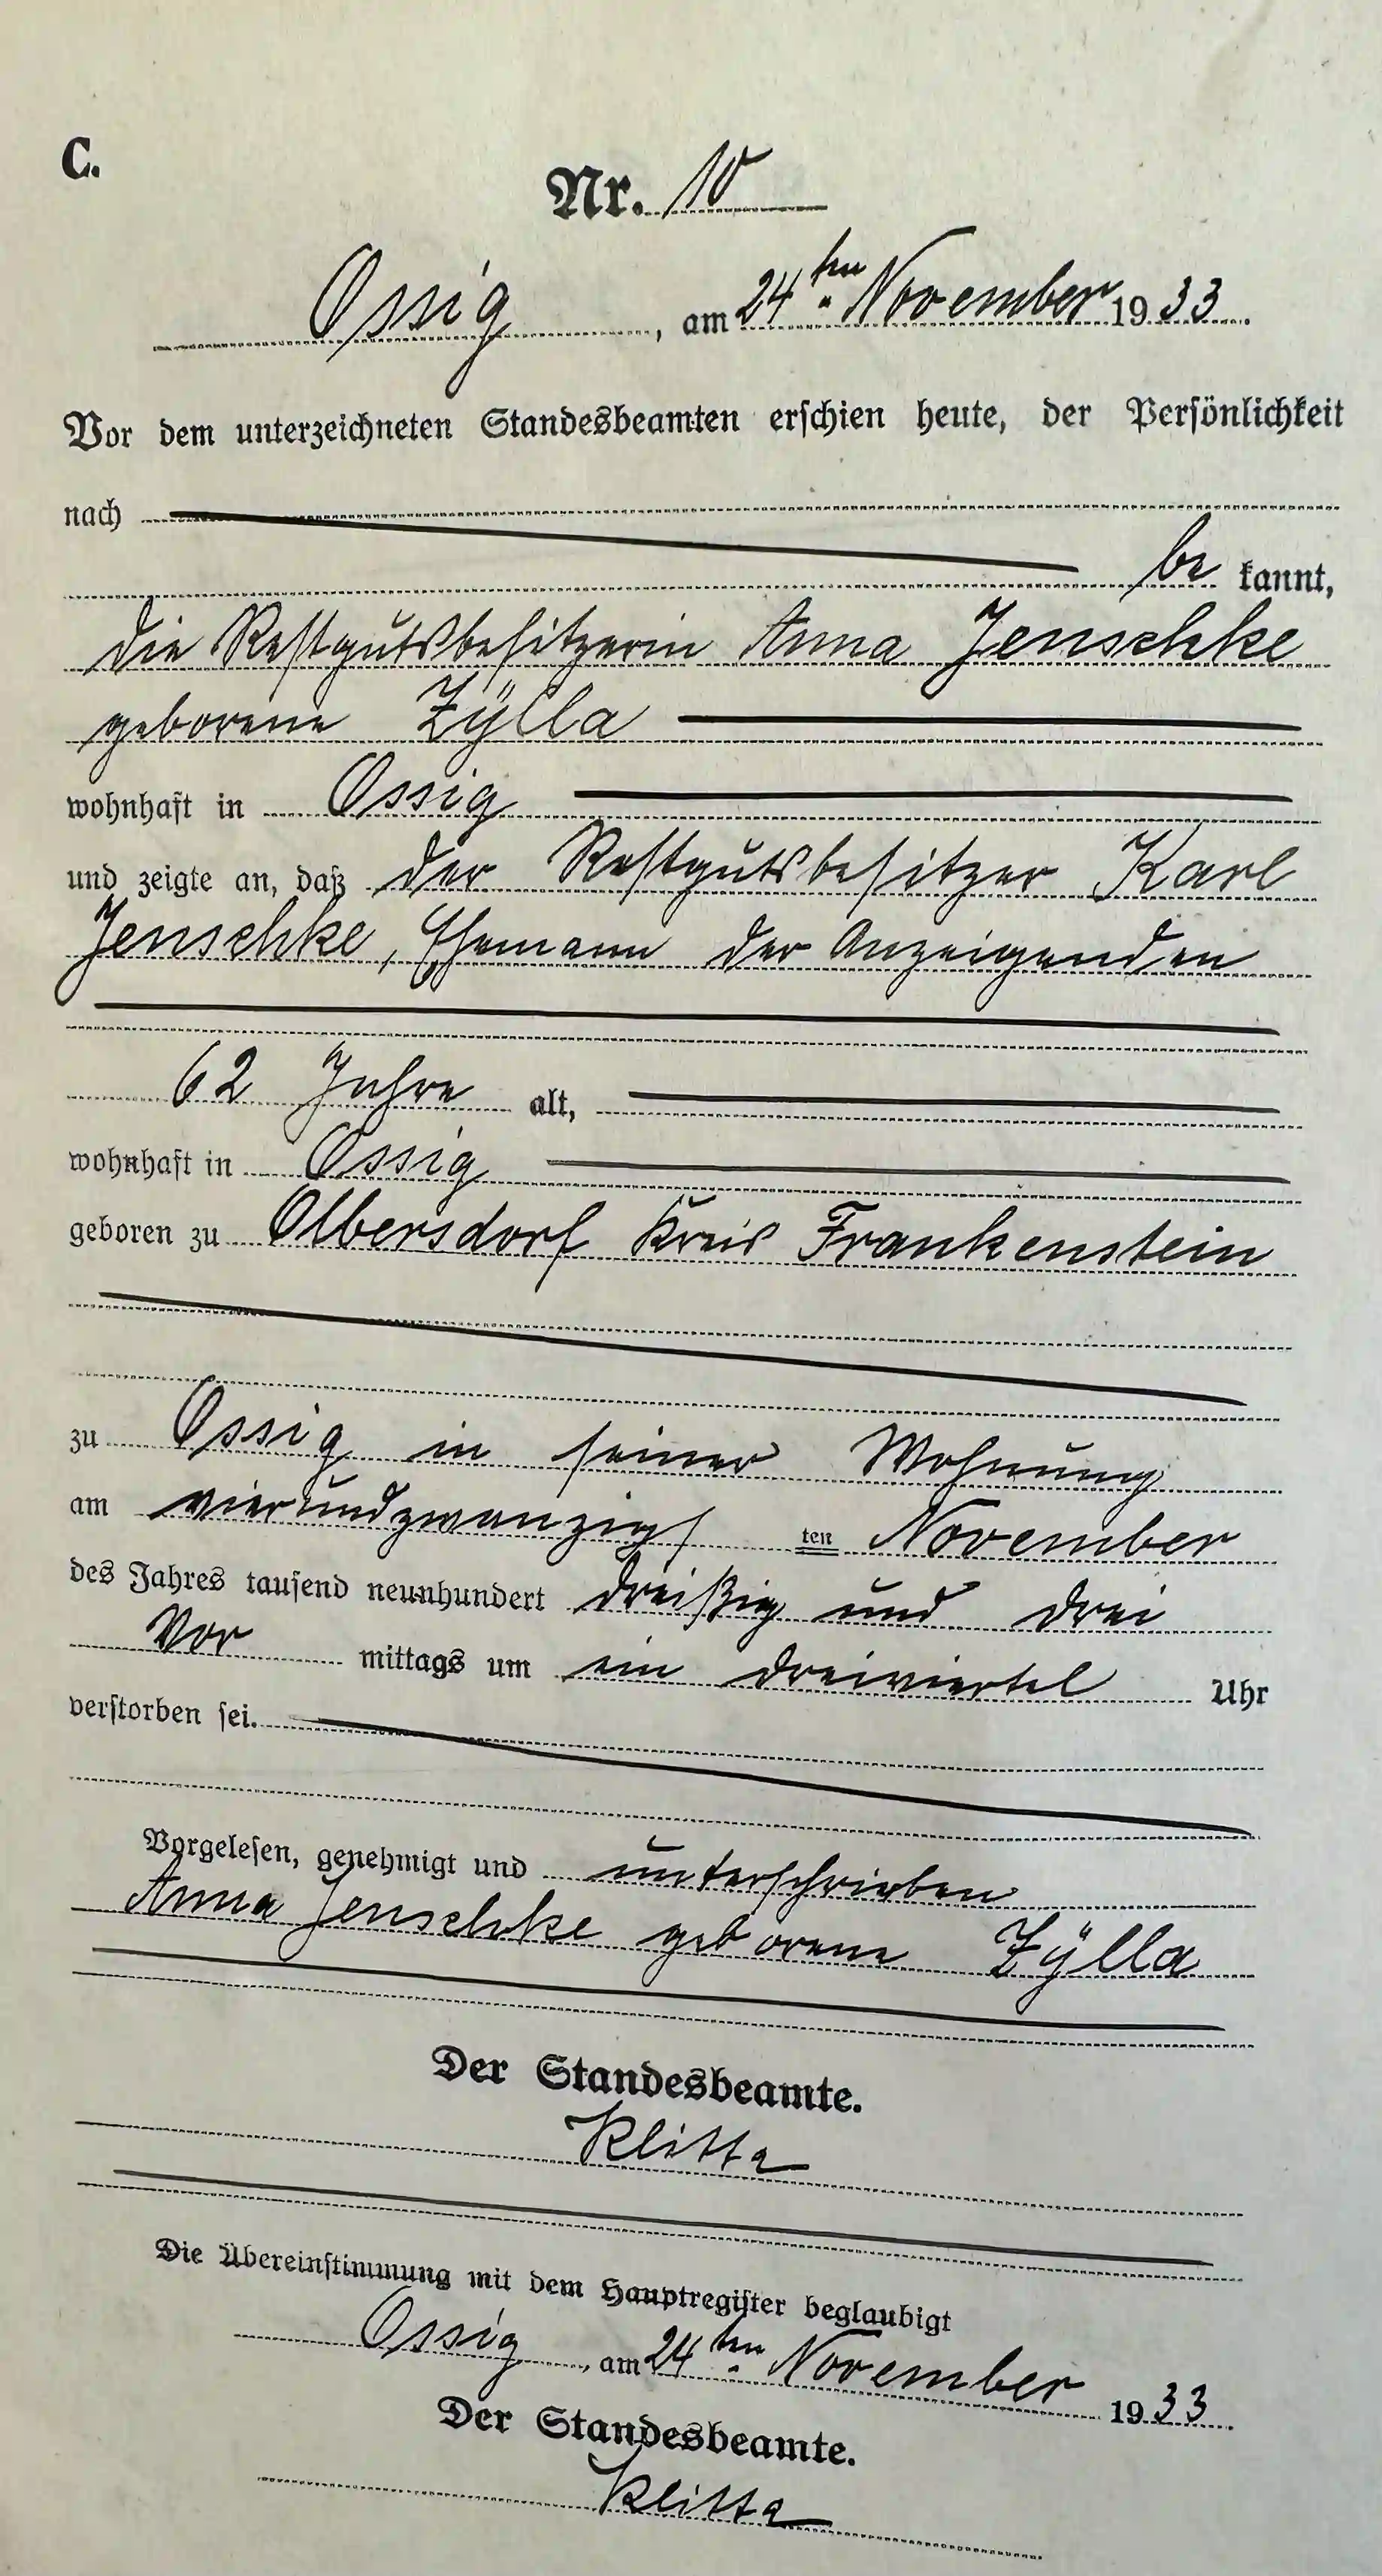 C.
Nr. 10
Ossig, am 24ten November 1933.
Vor dem unterzeichneten Standesbeamten erschien heute, der Persönlichkeit
nach
be kannt,
die Restgutsbesitzerin Anna Jenschke
geborene Zÿlla
wohnhaft in Ossig
und zeigte an, daß der Restgutsbesitzer Karl
Jenschke, Ehemann der Anzeigenden
62 Jahre alt,
wohnhaft in Ossig
geboren zu Olbersdorf Kreis Frankenstein
zu Ossig in seiner Wohnung
am vierundzwanzigsten November
des Jahres tausend neunhundert dreißig und drei
Vor mittags um ein dreiviertel Uhr
verstorben sei.
Vorgelesen, genehmigt und unterschrieben
Anna Jenschke geborene Zÿlla
Der Standesbeamte.
Klitta
Die Übereinstimmung mit dem Hauptregister beglaubigt
Ossig, am 24ten November 1933.
Der Standesbeamte.
Klitta